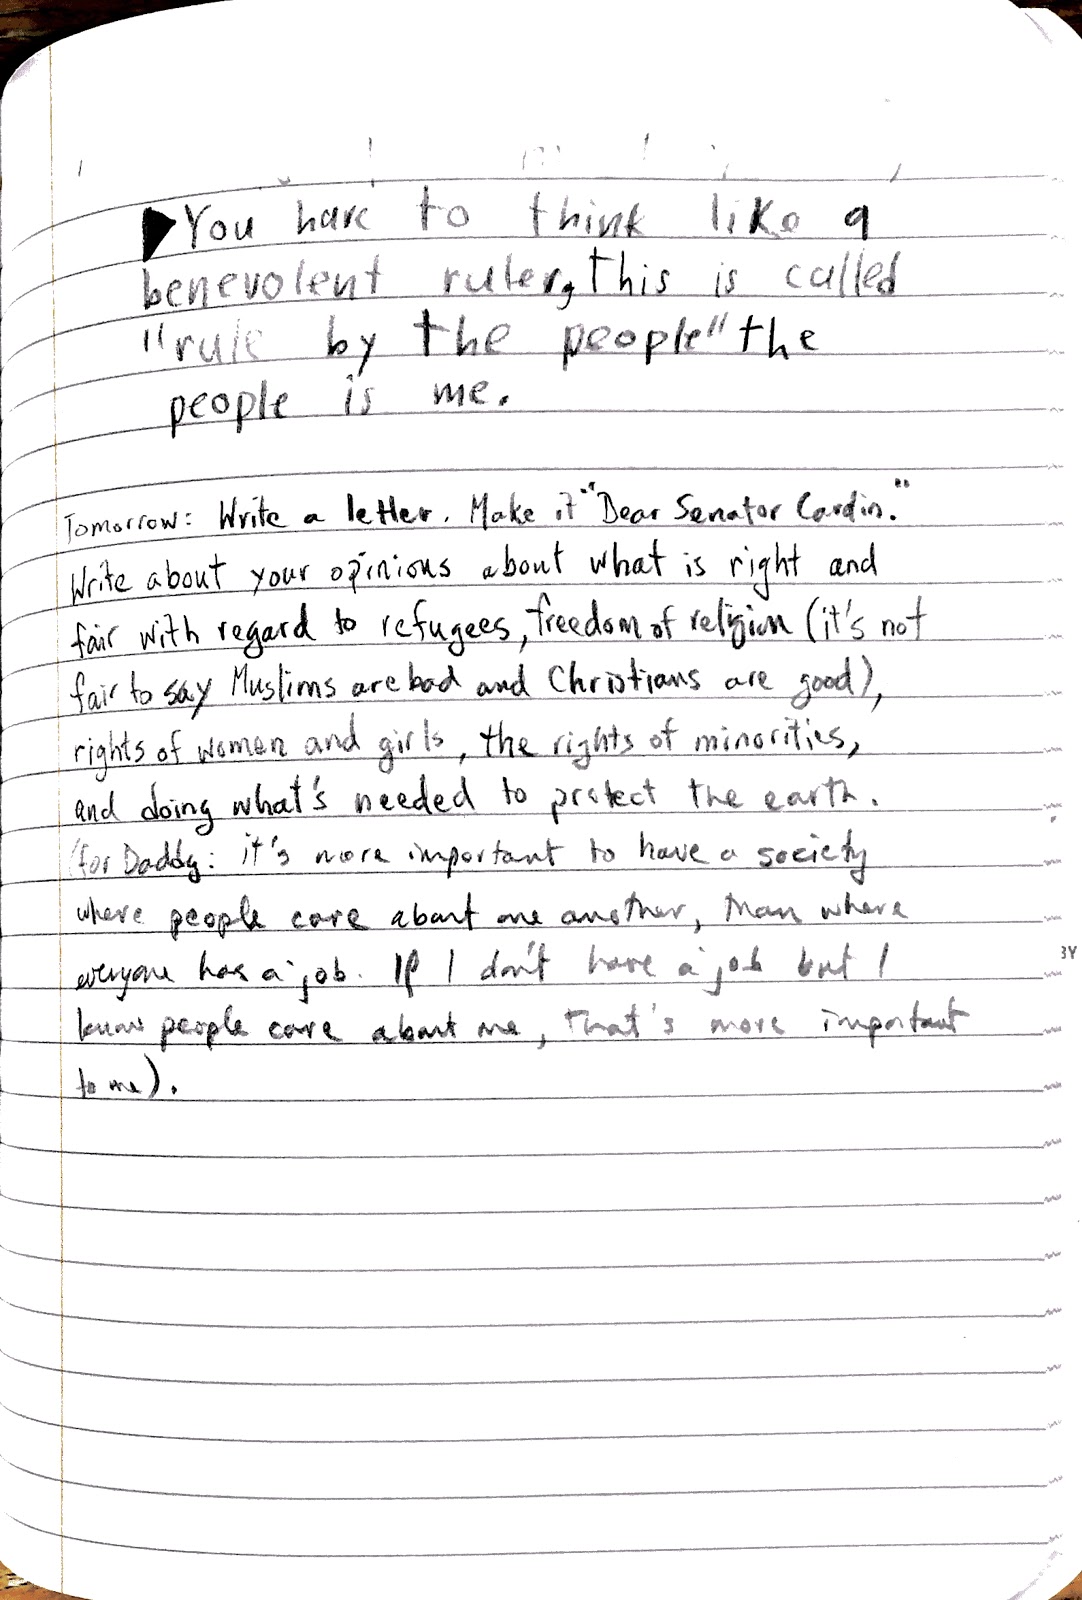 You have to think like a
benevolent ruler, this is called
"rule by the people" the
people is me.
Tomorrow: Write a letter. Make it "Dear Senator Cardin."
Write about your opinions about what is right and
fair with regard to refugees, freedom of religion (it's not
fair to say Muslims are bad and Christians are good),
rights of women and girls, the rights of minorities,
and doing what's needed to protect the earth.
(for Daddy: it's more important to have a society
where people care about one another, than where
everyone has a job. If I don't have a job but I
know people care about me, that's more important
to me).